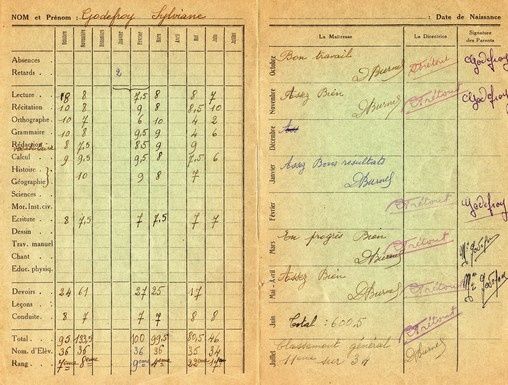 NOM et Prénom : Godefroy Sylviane
: Date de Naissance
Octobre Novembre Décembre Janvier Février Mars Avril Mai Juin Juillet
Absences
Retards 2
Lecture 8 8 7,5 8 8 7
Récitation 10 8 9 8 8,5 10
Orthographe 10 7 6 10 4 2
Grammaire 10 8 9,5 9 4 6
Rédaction 8 7,5 8,5 9 9
Calcul 9 9,5 9,5 8 7,5 6
Histoire
Géographie 10 9 8 7
Sciences
Mor. Inst. civ.
Ecriture 8 7,5 7 7,5 7 7
Dessin
Trav. manuel
Chant
Educ. physiq.
Devoirs 24 61 27 25 17
Leçons
Conduite 8 7 7 7 8 8
Total 95 133,5 100 99,5 80,5 46
Nom. d'Elèv. 36 36 36 36 35 34
Rang 7ème 8ème 9ème 4ème 22ème 17ème
La Maîtresse La Directrice Signature des Parents
Octobre Bon travail DBurnel Trétout Godefroy
Novembre Assez Bien DBurnel Trétout Godefroy
Décembre As
Janvier Assez Bons resultats DBurnel
Février Trétout Godefroy
Mars En progrès Bien DBurnel Trétout
Mai - Avril Assez Bien DBurnel Trétout
Juin Total : 600,5 Trétout
Juillet Classement général DBurnel
11ème sur 34